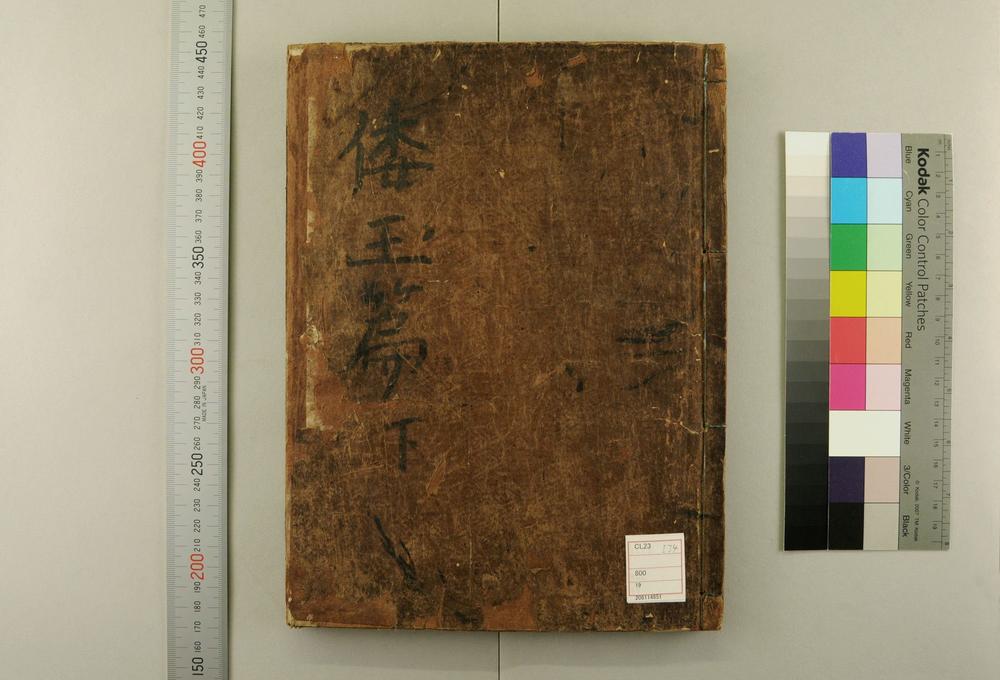 倭玉篇下
CL23 274
800
19
200114851
Kodak Color Control Patches
Blue
Cyan
Green
Yellow
Red
Magenta
White
3/Color
Black
© Kodak, 2007 TM: Kodak
470
460
450
440
430
420
410
400
390
380
370
360
350
340
330
320
310
300
290
280
270
260
250
240
230
220
210
200
190
180
170
160
150